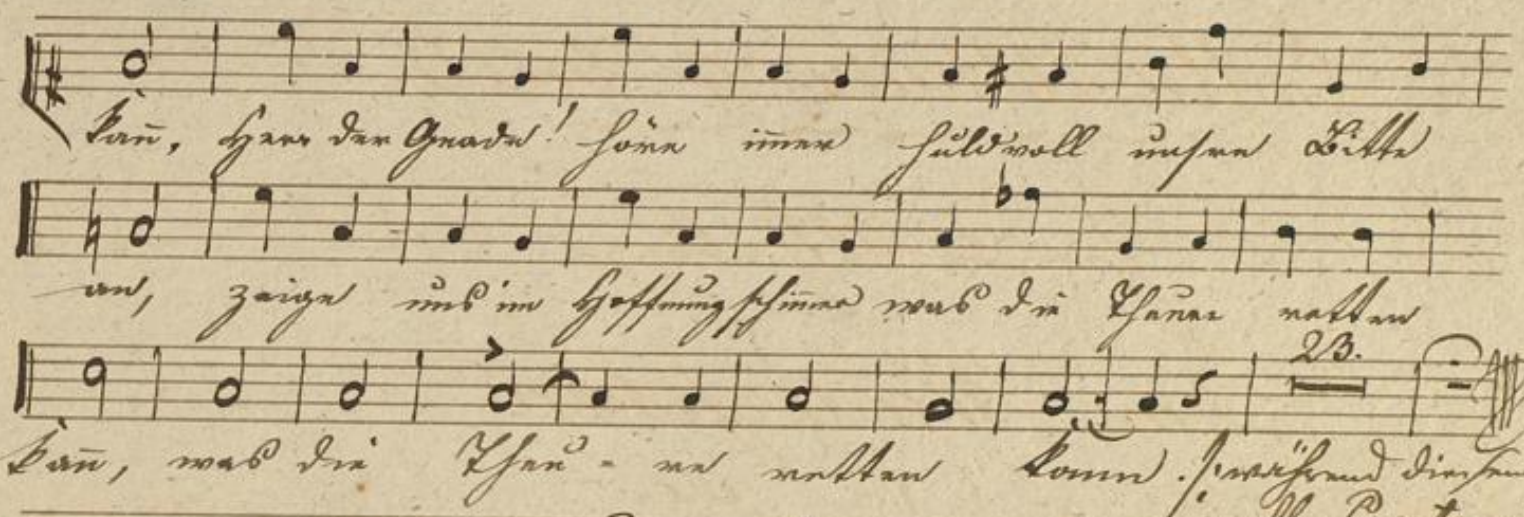 kan̄, Herr der Gnade! höre im̄er huldvoll unsre Bitte
an, zeige uns im Hoffnungschim̄er was die Theure retten
23.
kan̄, was die Theu - re retten kann. während diesem